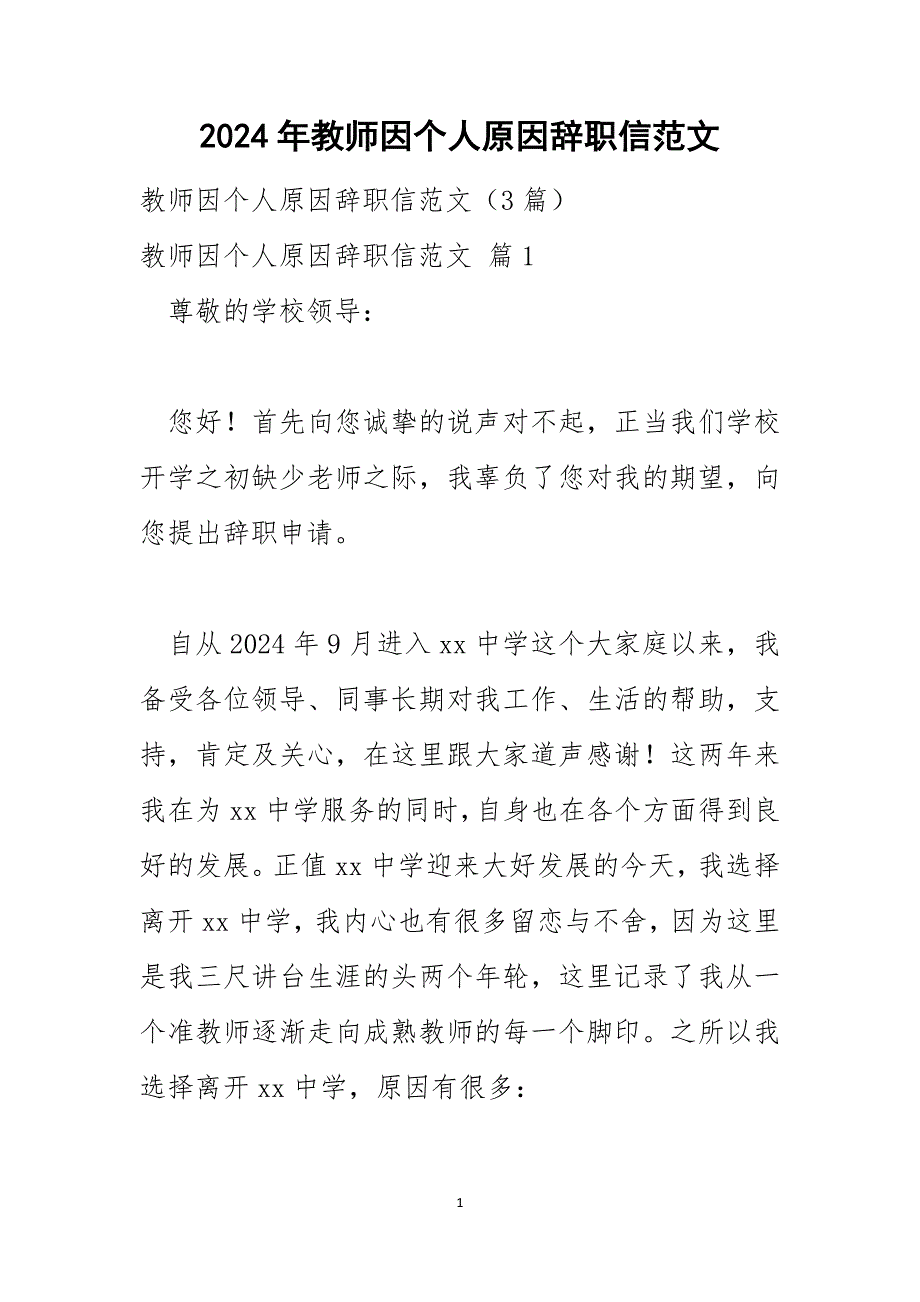 2024年教师因个人原因辞职信范文
教师因个人原因辞职信范文（3篇）
教师因个人原因辞职信范文 篇1
尊敬的学校领导：
您好！首先向您诚挚的说声对不起，正当我们学校
开学之初缺少老师之际，我辜负了您对我的期望，向
您提出辞职申请。
自从2024年9月进入xx中学这个大家庭以来，我
备受各位领导、同事长期对我工作、生活的帮助，支
持，肯定及关心，在这里跟大家道声感谢！这两年来
我在为xx中学服务的同时，自身也在各个方面得到良
好的发展。正值xx中学迎来大好发展的今天，我选择
离开xx中学，我内心也有很多留恋与不舍，因为这里
是我三尺讲台生涯的头两个年轮，这里记录了我从一
个准教师逐渐走向成熟教师的每一个脚印。之所以我
选择离开xx中学，原因有很多：
1